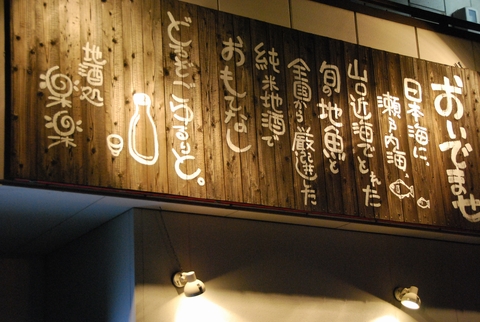 おいでませ
日本海に、
瀬戸内海、
山口近海でとれた
旬の地魚と
全国から厳選した
純米地酒で
おもてなし
どうぞごゆるりと。
地酒処
楽楽